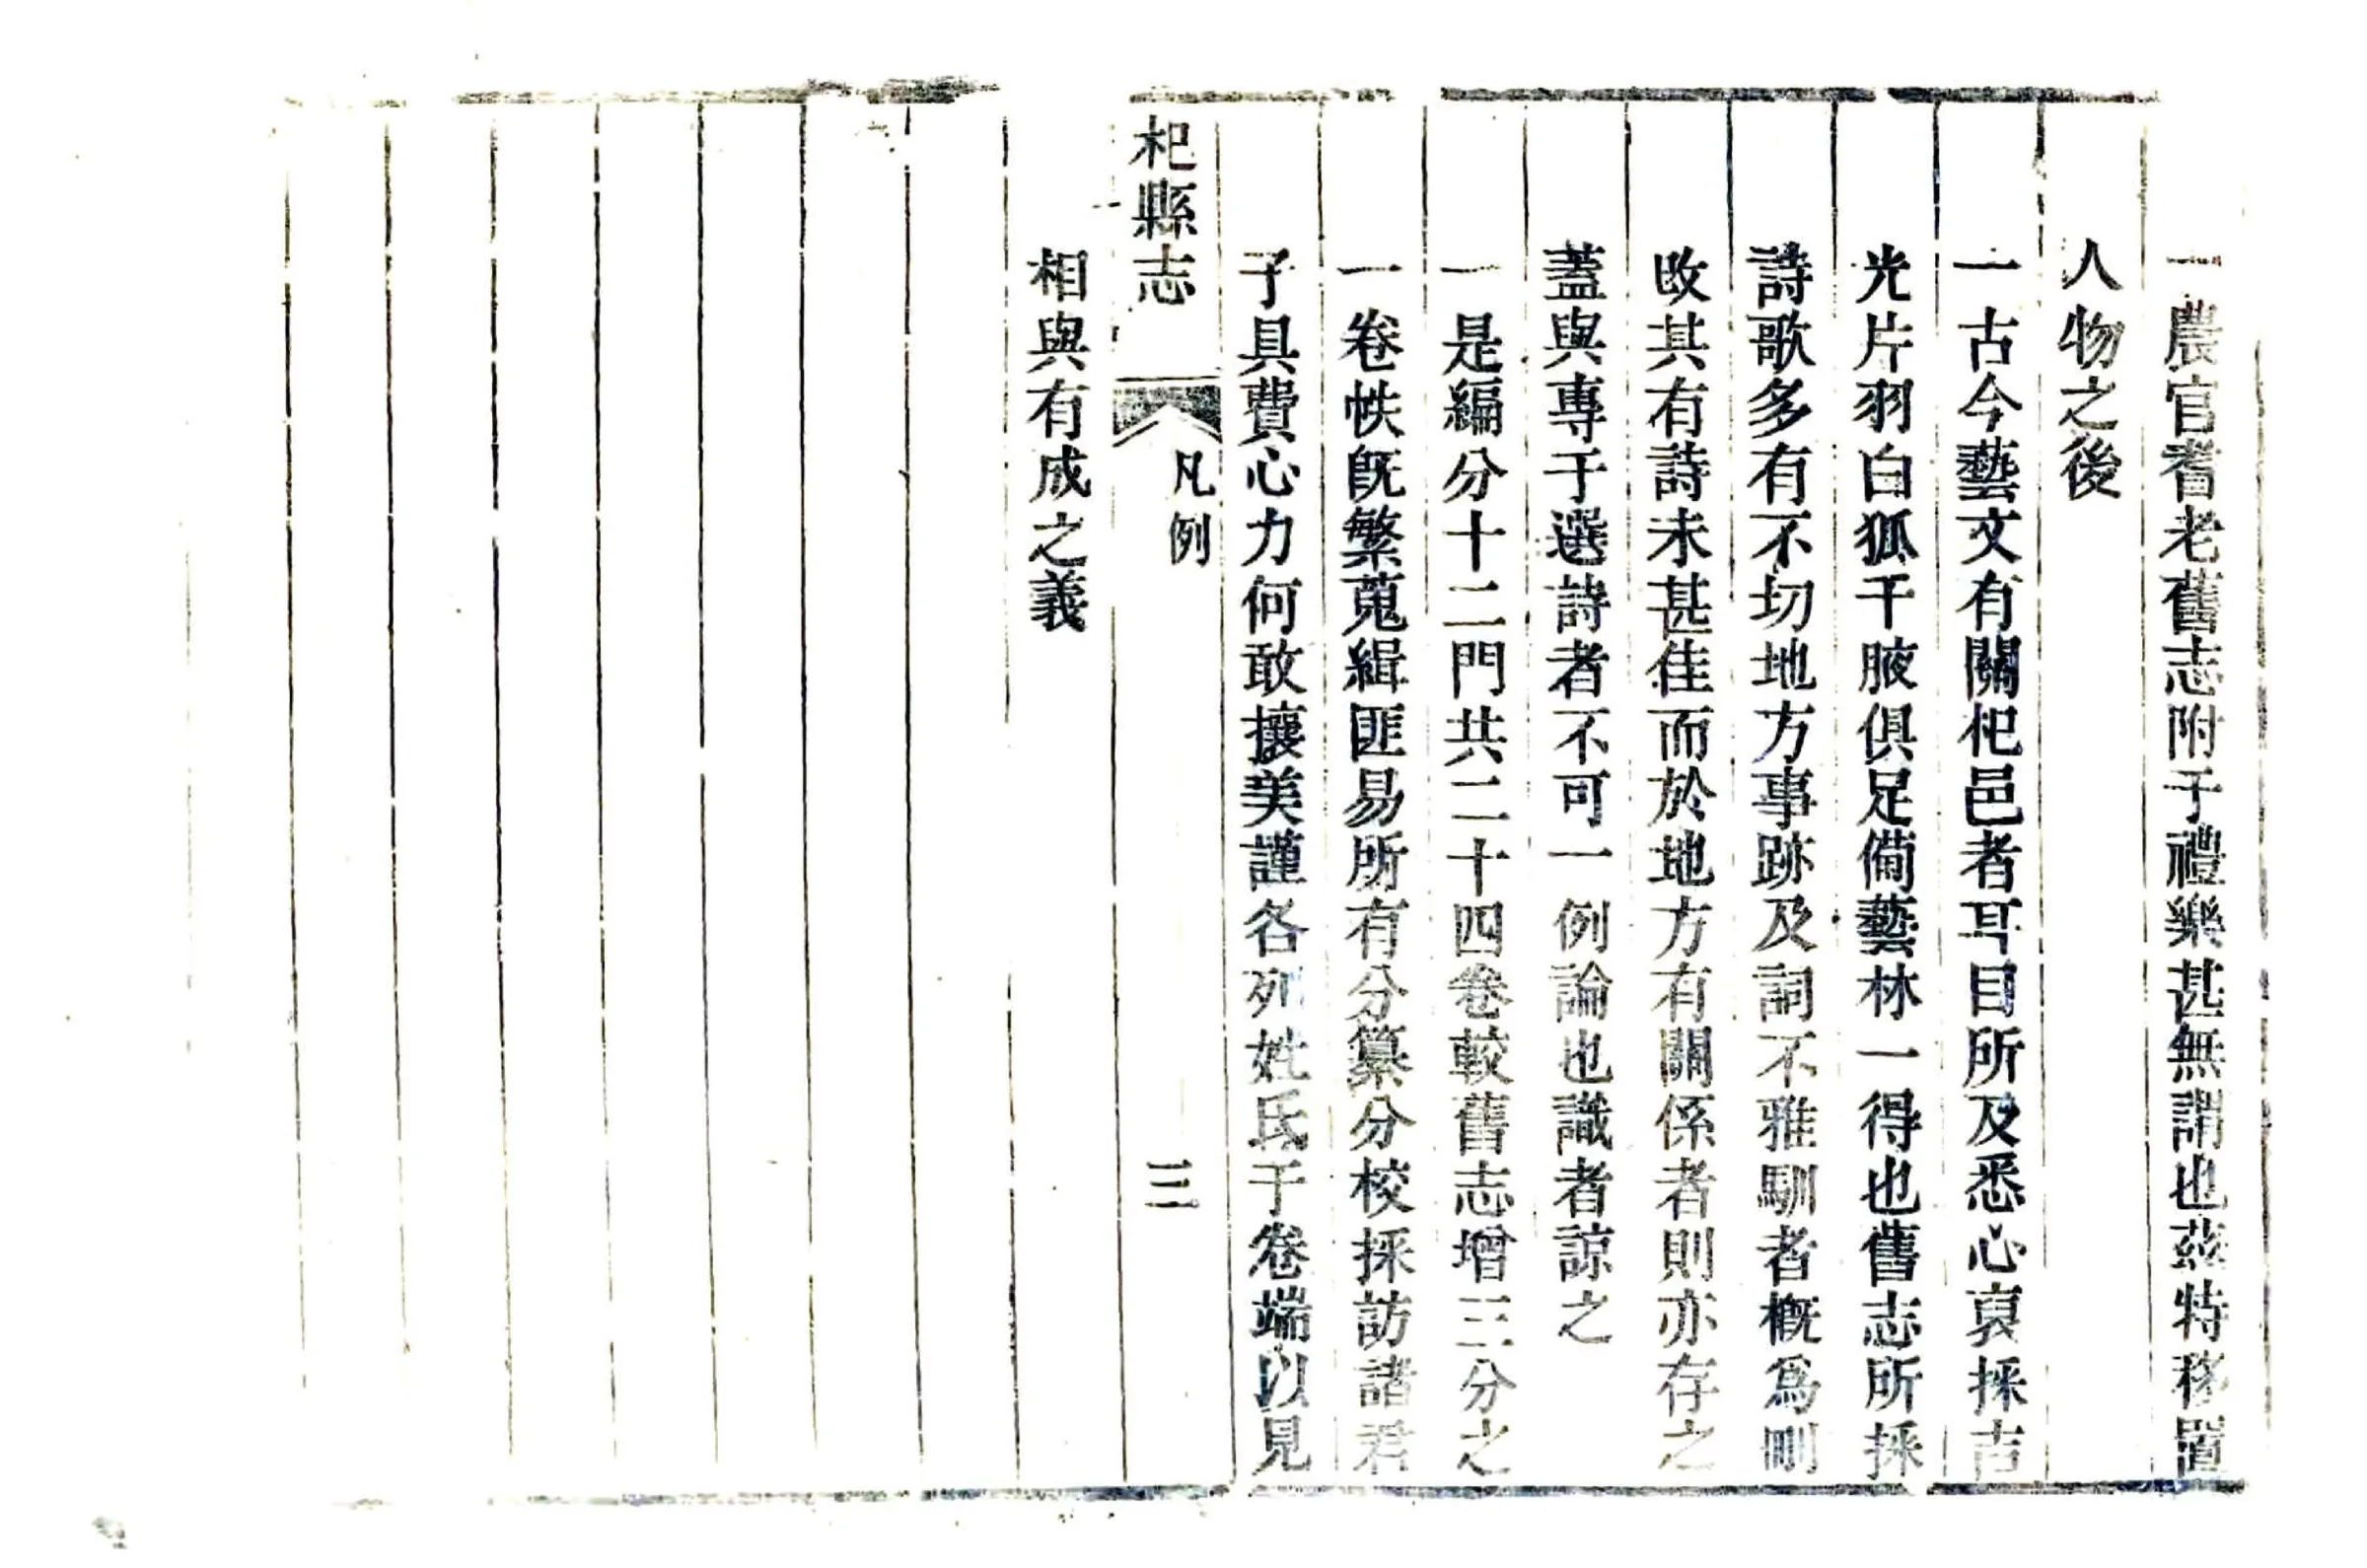 一農官耆老舊志附于禮樂甚無謂也茲特移置
人物之後
一古今藝文有關杞邑者耳目所及悉心裒採吉
光片羽白狐千腋俱足備藝林一得也舊志所採
詩歌多有不切地方事跡及詞不雅馴者概爲刪
改其有詩未甚佳而於地方有關係者則亦存之
蓋與專于選詩者不可一例論也識者諒之
一是編分十二門共二十四卷較舊志增三分之
一卷帙旣繁蒐緝匪易所有分纂分校採訪諸君
子具費心力何敢攘美謹各列姓氏于卷端以見
杞縣志
凡例
三
相與有成之義